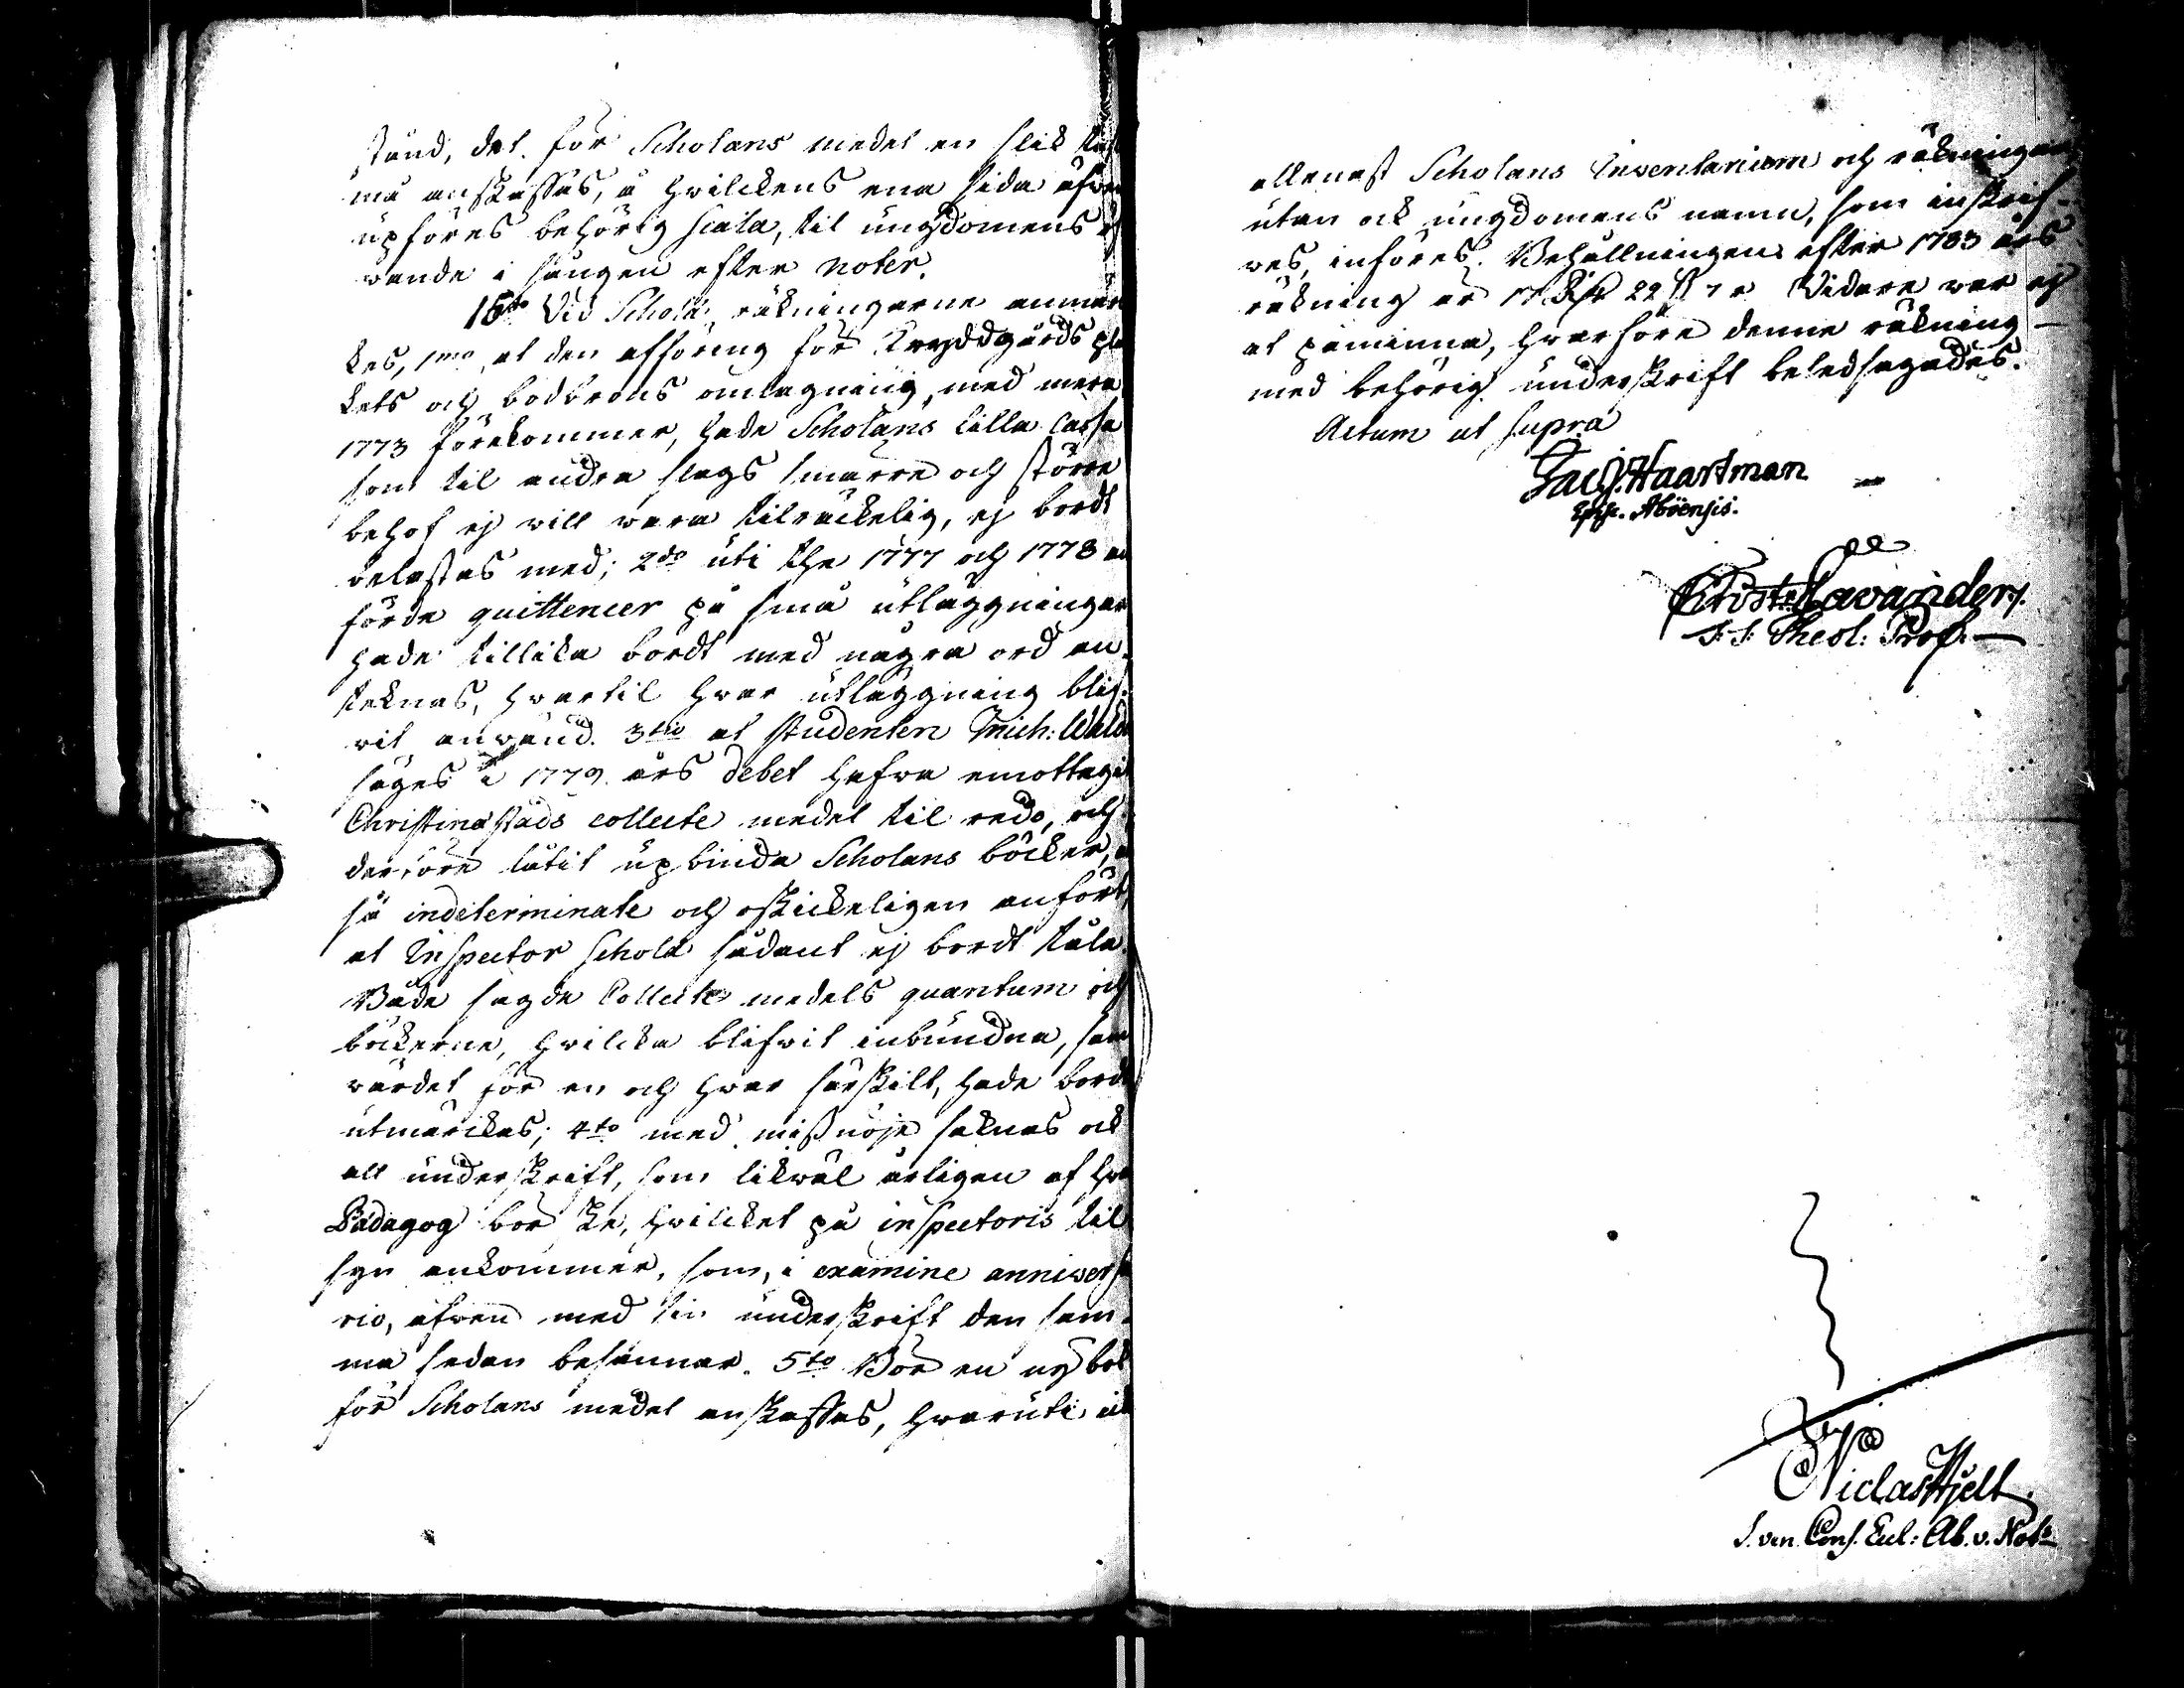 stånd, det för Scholans medel en slik
må anskaffas, å hwilckens ena sida äfwen
upföres behörig scala, til ungdomens
wande i sången efter noter.
16to Vid Scholæ räkningarne anmär
kes, 1mo, at den afföring för Kryddgårds
kets och bodbrons omlagning, med mera
1773 förekommer, hade Scholans lilla Cassa
som til andra slags smärre och större
behof ej will wara tilräckelig, ej bordt
belastas med; 2do uti the 1777 och 1778 an
förde quittencer på små utläggningar
hade tillika bordt med några ord an-
teknas, hwartil hwar utläggning blif-
wit anwänd. 3tio at studenten Mich: Wald
säges i 1779 års debet hafwa emottagit
Christinæstads collecte medel til redo, och
derföre låtit upbinda Scholans böcker,
så indeterminate och oskickeligen anfört,
at Inspector Scholæ sådant ej bordt tåla.
Både sagde Collecte medels quantum och
böckerne, hwilcka blifwit inbundna, sam
wärdet för en och hwar särskilt, hade bordt
utmärckas; 4to med missnöje saknas ock
all underskrift, som likwäl årligen af hwar
Pædagog bör ske, hwilcket på inspectoris til
syn ankommer, som, i examine anniversa
rio, äfwen med sin underskrift den sam-
ma sedan besannar. 5to Bör en ny bok
för Scholans medel anskaffas, hwaruti ick
allenast Scholans Inventarium och räkningar
utan ock ungdomens namn, som inskrif-
wes, införes. Behållningen efter 1783 års
räkning är 17 Rdr 22 s 7 r Vidare war ej
at påminna, hwarföre denne räkning
med behörig underskrift beledsagades.
Actum ut supra
Jac. Haartman
Episc. Aboensis.
Christ. Cavander.
S. S. Theol: Prof.
Niclas Hjelt
S. ven. Cons. Eccl: Ab. v. Not: